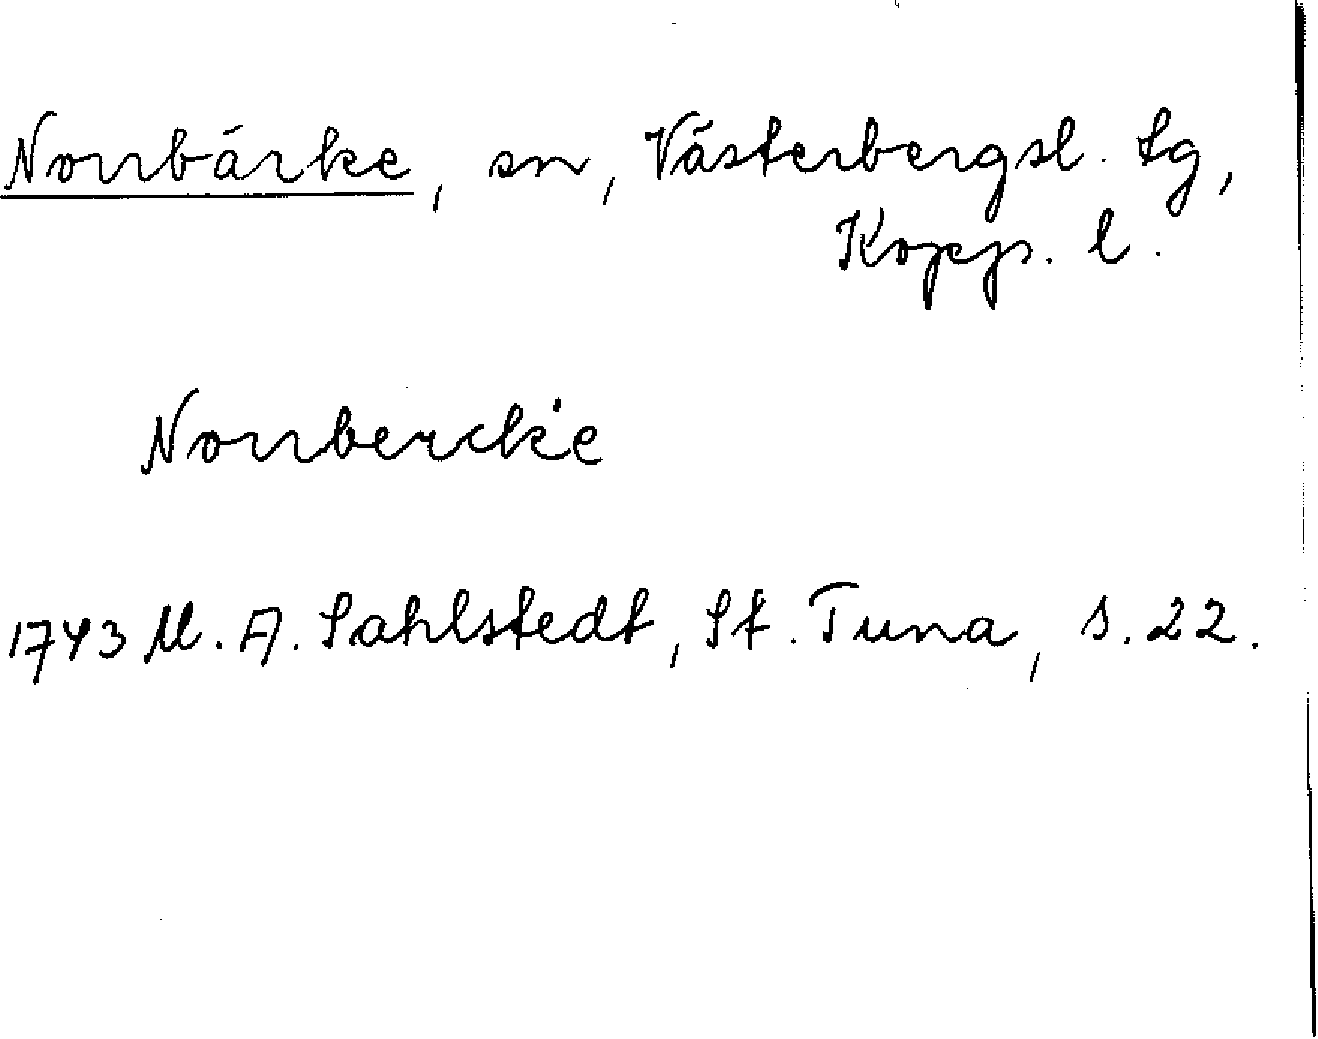 Norrbärke, sn, Västerbergsl. tg,
Kopp. l.
Norrbercke
1743 M. A. Sahlstedt, St. Tuna, s. 22.